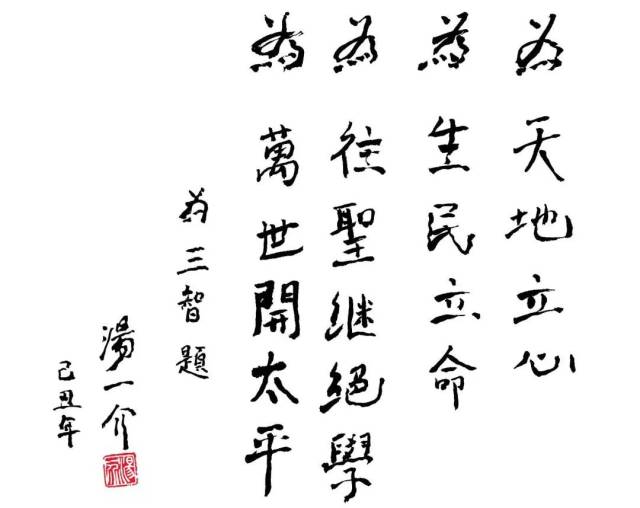 為天地立心
為生民立命
為往聖继絕學
為萬世開太平
為三智題
湯一介
己丑年